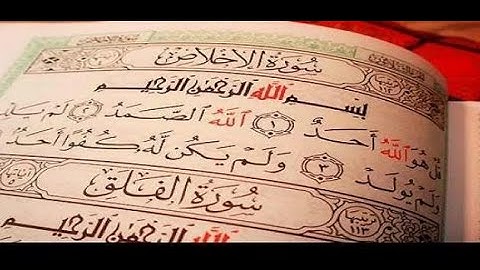 سُورَةُ الإِخْلَاصِ
بِسْمِ اللَّهِ الرَّحْمَٰنِ الرَّحِيمِ
قُلْ هُوَ ٱللَّهُ أَحَدٌ ١ ٱللَّهُ ٱلصَّمَدُ ٢ لَمْ يَلِدْ
وَلَمْ يُولَدْ ٣ وَلَمْ يَكُن لَّهُۥ كُفُوًا أَحَدٌۢ
سُورَةُ الْفَلَقِ
ترتيبها ١١٣
بِسْمِ اللَّهِ الرَّحْمَٰنِ الرَّحِيمِ